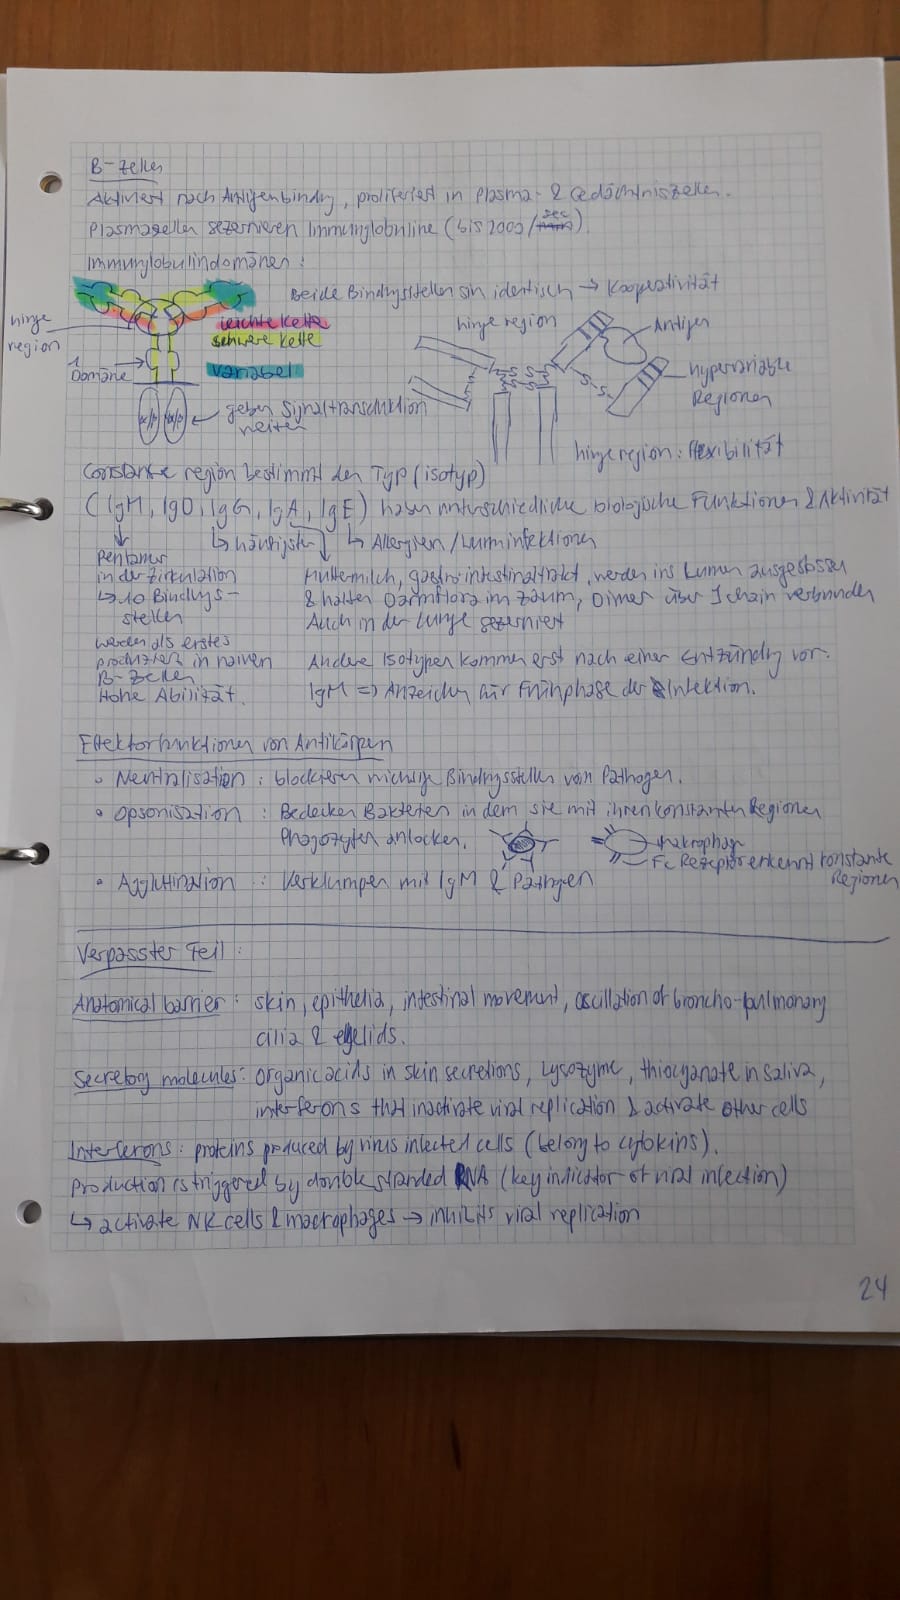 B-Zellen
Aktiviert nach Antigenbindung, proliferiert in Plasma- & Gedächtniszellen.
Plasmazellen sezernieren Immunglobuline (bis 2000/sec)
Immunglobulindomänen:
Beide Bindungsstellen sin identisch → Kooperativität
hinge region
leichte Kette
schwere Kette
variabel
1 Domäne
geben Signaltransduktion weiter
hinge region
Antigen
hypervariable Regionen
S S S S S S
hinge region: Flexibilität
Constante region bestimmt den Typ (isotyp)
(IgM, IgD, IgG, IgA, IgE) haben unterschiedliche biologische Funktionen & Aktivität
↳ häufigster
↳ Allergien / Wurminfektionen
Pentamer
in der Zirkulation
↳ 10 Bindungs-
stellen
werden als erstes
produziert in naiven
B-Zellen
Hohe Abilität.
Muttermilch, gastrointestinaltrakt, werden ins Lumen ausgestossen
& halten Darmflora im Zaum, Dimer über J chain verbunden
Auch in der Lunge sezerniert
Andere Isotypen kommen erst nach einer Entzündung vor.
IgM => Anzeichen für Frühphase der Infektion.
Effektorfunktionen von Antikörpern
• Neutralisation: blockieren wichtige Bindungsstellen vom Pathogen.
• Opsonisation: Bedecken Bakterien in dem sie mit ihren konstanten Regionen
Phagozyten anlocken.
Makrophage
Fc Rezeptor erkennt konstante
Regionen
• Agglutination: Verklumpen mit IgM & Pathogen
Verpasster Teil:
Anatomical barrier: skin, epithelia, intestinal movement, oscillation of broncho-pulmonary
cilia & eyelids.
Secretory molecules: organic acids in skin secretions, Lysozyme, thiocyanate in saliva,
interferons that inactivate viral replication & activate other cells
Interferons: proteins produced by virus infected cells (belong to cytokins).
Production is triggered by double stranded RNA (key indicator of viral infection)
↳ activate NK cells & macrophages → inhibits viral replication
24